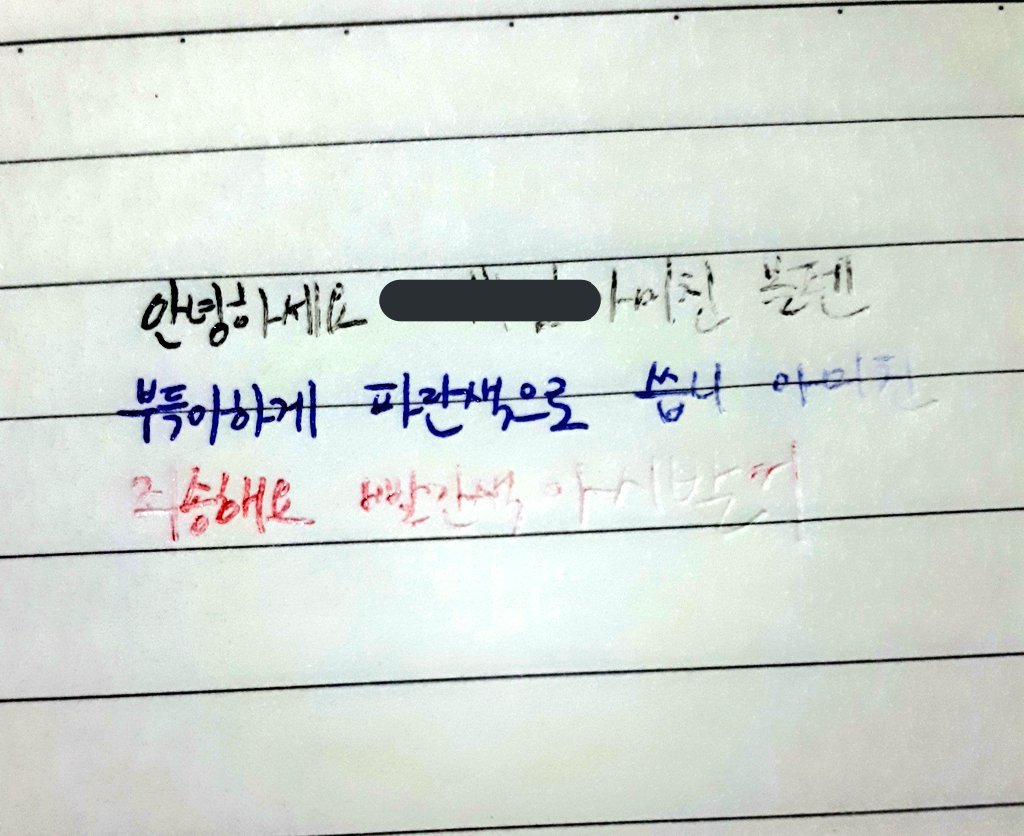 안녕하세요 아 미친 볼펜
부득이하게 파란색으로 씁니 아 미친
죄송해요 빨간색 아 시박거